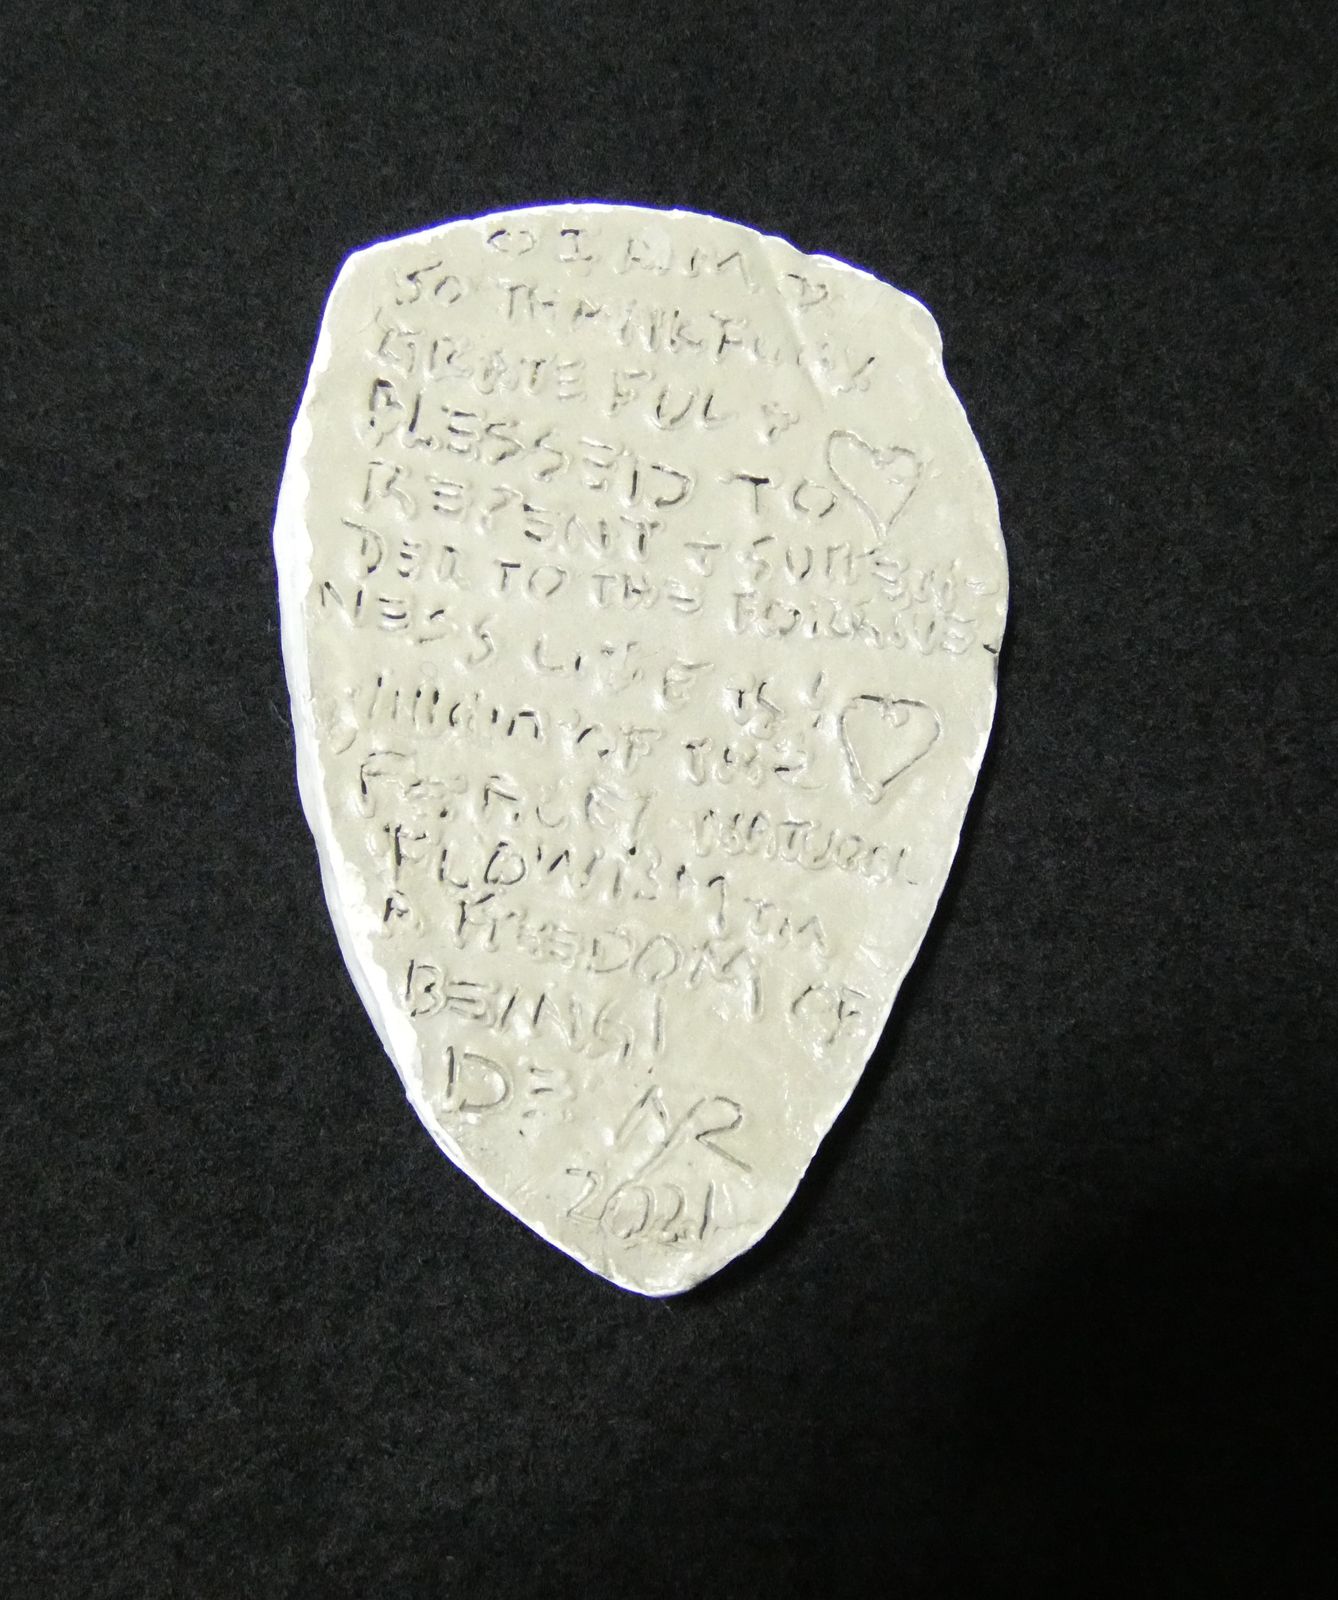 I AM
SO THANKFUL &
GRATEFUL &
BLESSED TO
REPENT & SURREN-
DER TO THE FORGIVE-
NESS LIFE IS!
OF THE
NATURAL
FLOWISM TM
A FREEDOM OF
BEING!
DE NR
2021